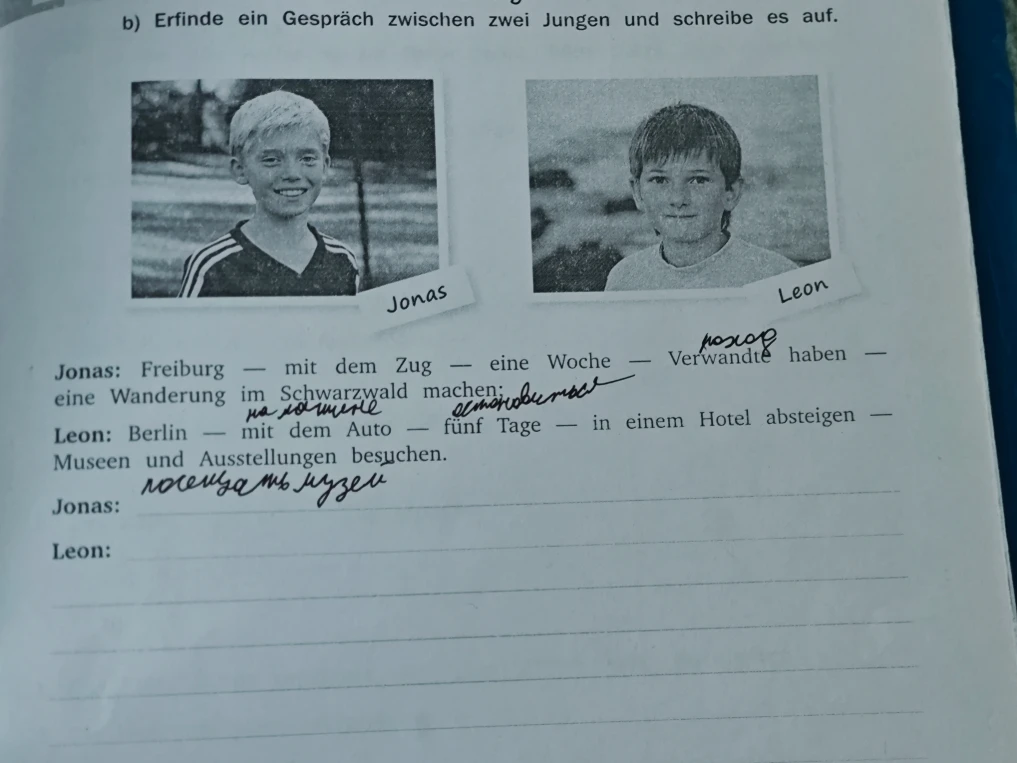 b) Erfinde ein Gespräch zwischen zwei Jungen und schreibe es auf.
Jonas
Leon
поход
Jonas: Freiburg — mit dem Zug — eine Woche — Verwandte haben —
eine Wanderung im Schwarzwald machen;
на машине остановиться
Leon: Berlin — mit dem Auto — fünf Tage — in einem Hotel absteigen —
Museen und Ausstellungen besuchen.
посещать музеи
Jonas:
Leon: